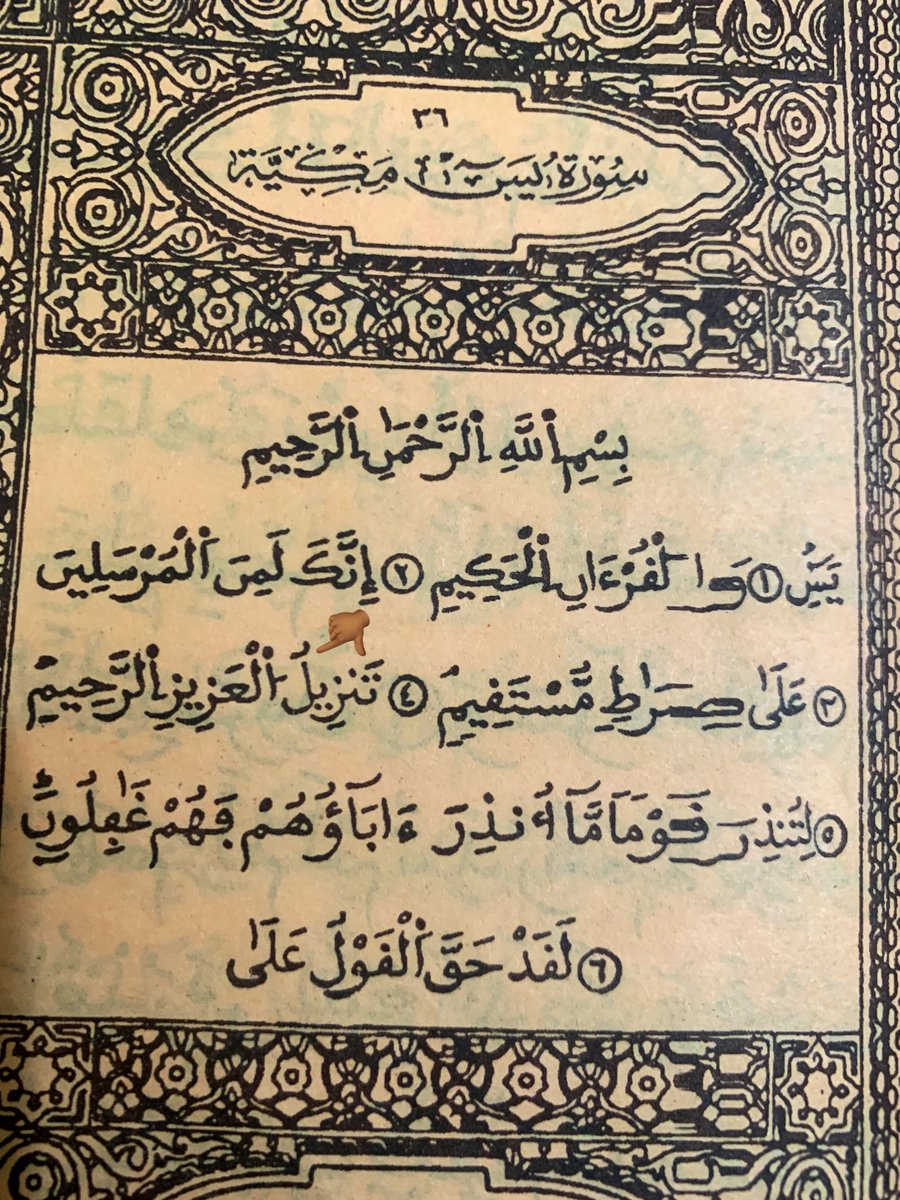 ٣٦
سُورَةُ يسٓ مَكِّيَّة
بِسْمِ اِللَّهِ اِلرَّحْمَٰنِ اِلرَّحِيمِ
يَسِٓ ١ وَالْقُرْءَانِ اِلْحَكِيمِ ٢ إِنَّكَ لَمِنَ اَلْمُرْسَلِينَ
٣ عَلَىٰ صِرَٰطٍ مُّسْتَقِيمٍ ٤ تَنزِيلُ اُلْعَزِيزِ اِلرَّحِيمِ
٥ لِتُنذِرَ قَوْمٗا مَّآ أُنذِرَ ءَابَآؤُهُمْ فَهُمْ غَٰفِلُونَ
٦ لَقَدْ حَقَّ اَلْقَوْلُ عَلَىٰ